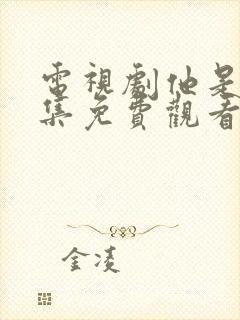 電視劇他是
集免費觀看
金凌